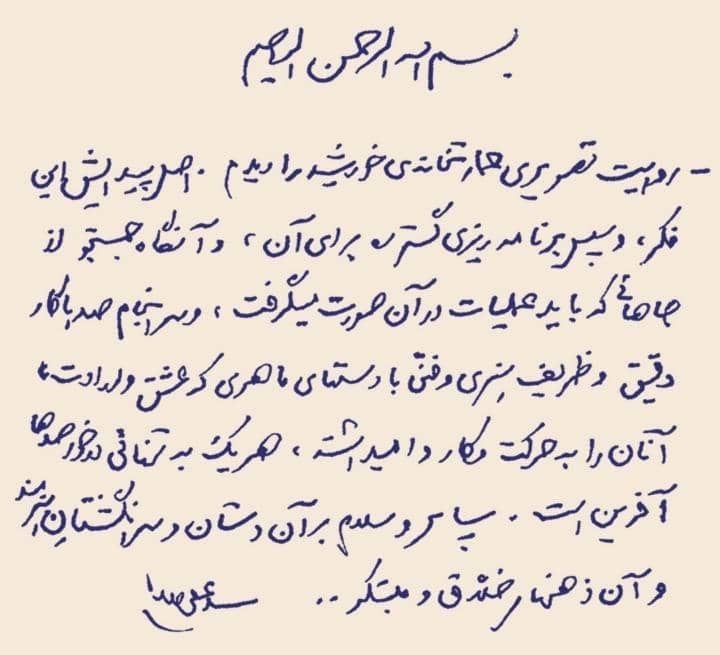 بسم الله الرحمن الرحیم
- روایت تصویری کارتخانه‌ی خورشید را دیدم. اصل پیدایش این
فکر، و سپس برنامه ریزی گسترده برای آن، و آنگاه جستجو از
جاهائی که باید عملیات در آن صورت میگرفت، و سرانجام صدها کار
دقیق و ظریف هنری و فنّی با دستهای ماهری که عشق و ارادت،
آنان را به حرکت و کار وامیداشته، هر یک به تنهائی در خور صدها
آفرین است. سپاس و سلام بر آن دستان و سرانگشتان هنرمند
و آن ذهنهای خلاق و مبتکر..
سیدعلی